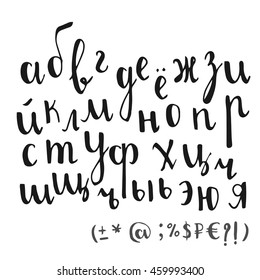 а б в г д е ё ж з и
й к л м н о п р
с т у ф х ц ч
ш щ ъ ы ь э ю я
(±* @ ;%$₽€?!)
shutterstock.com · 459993400